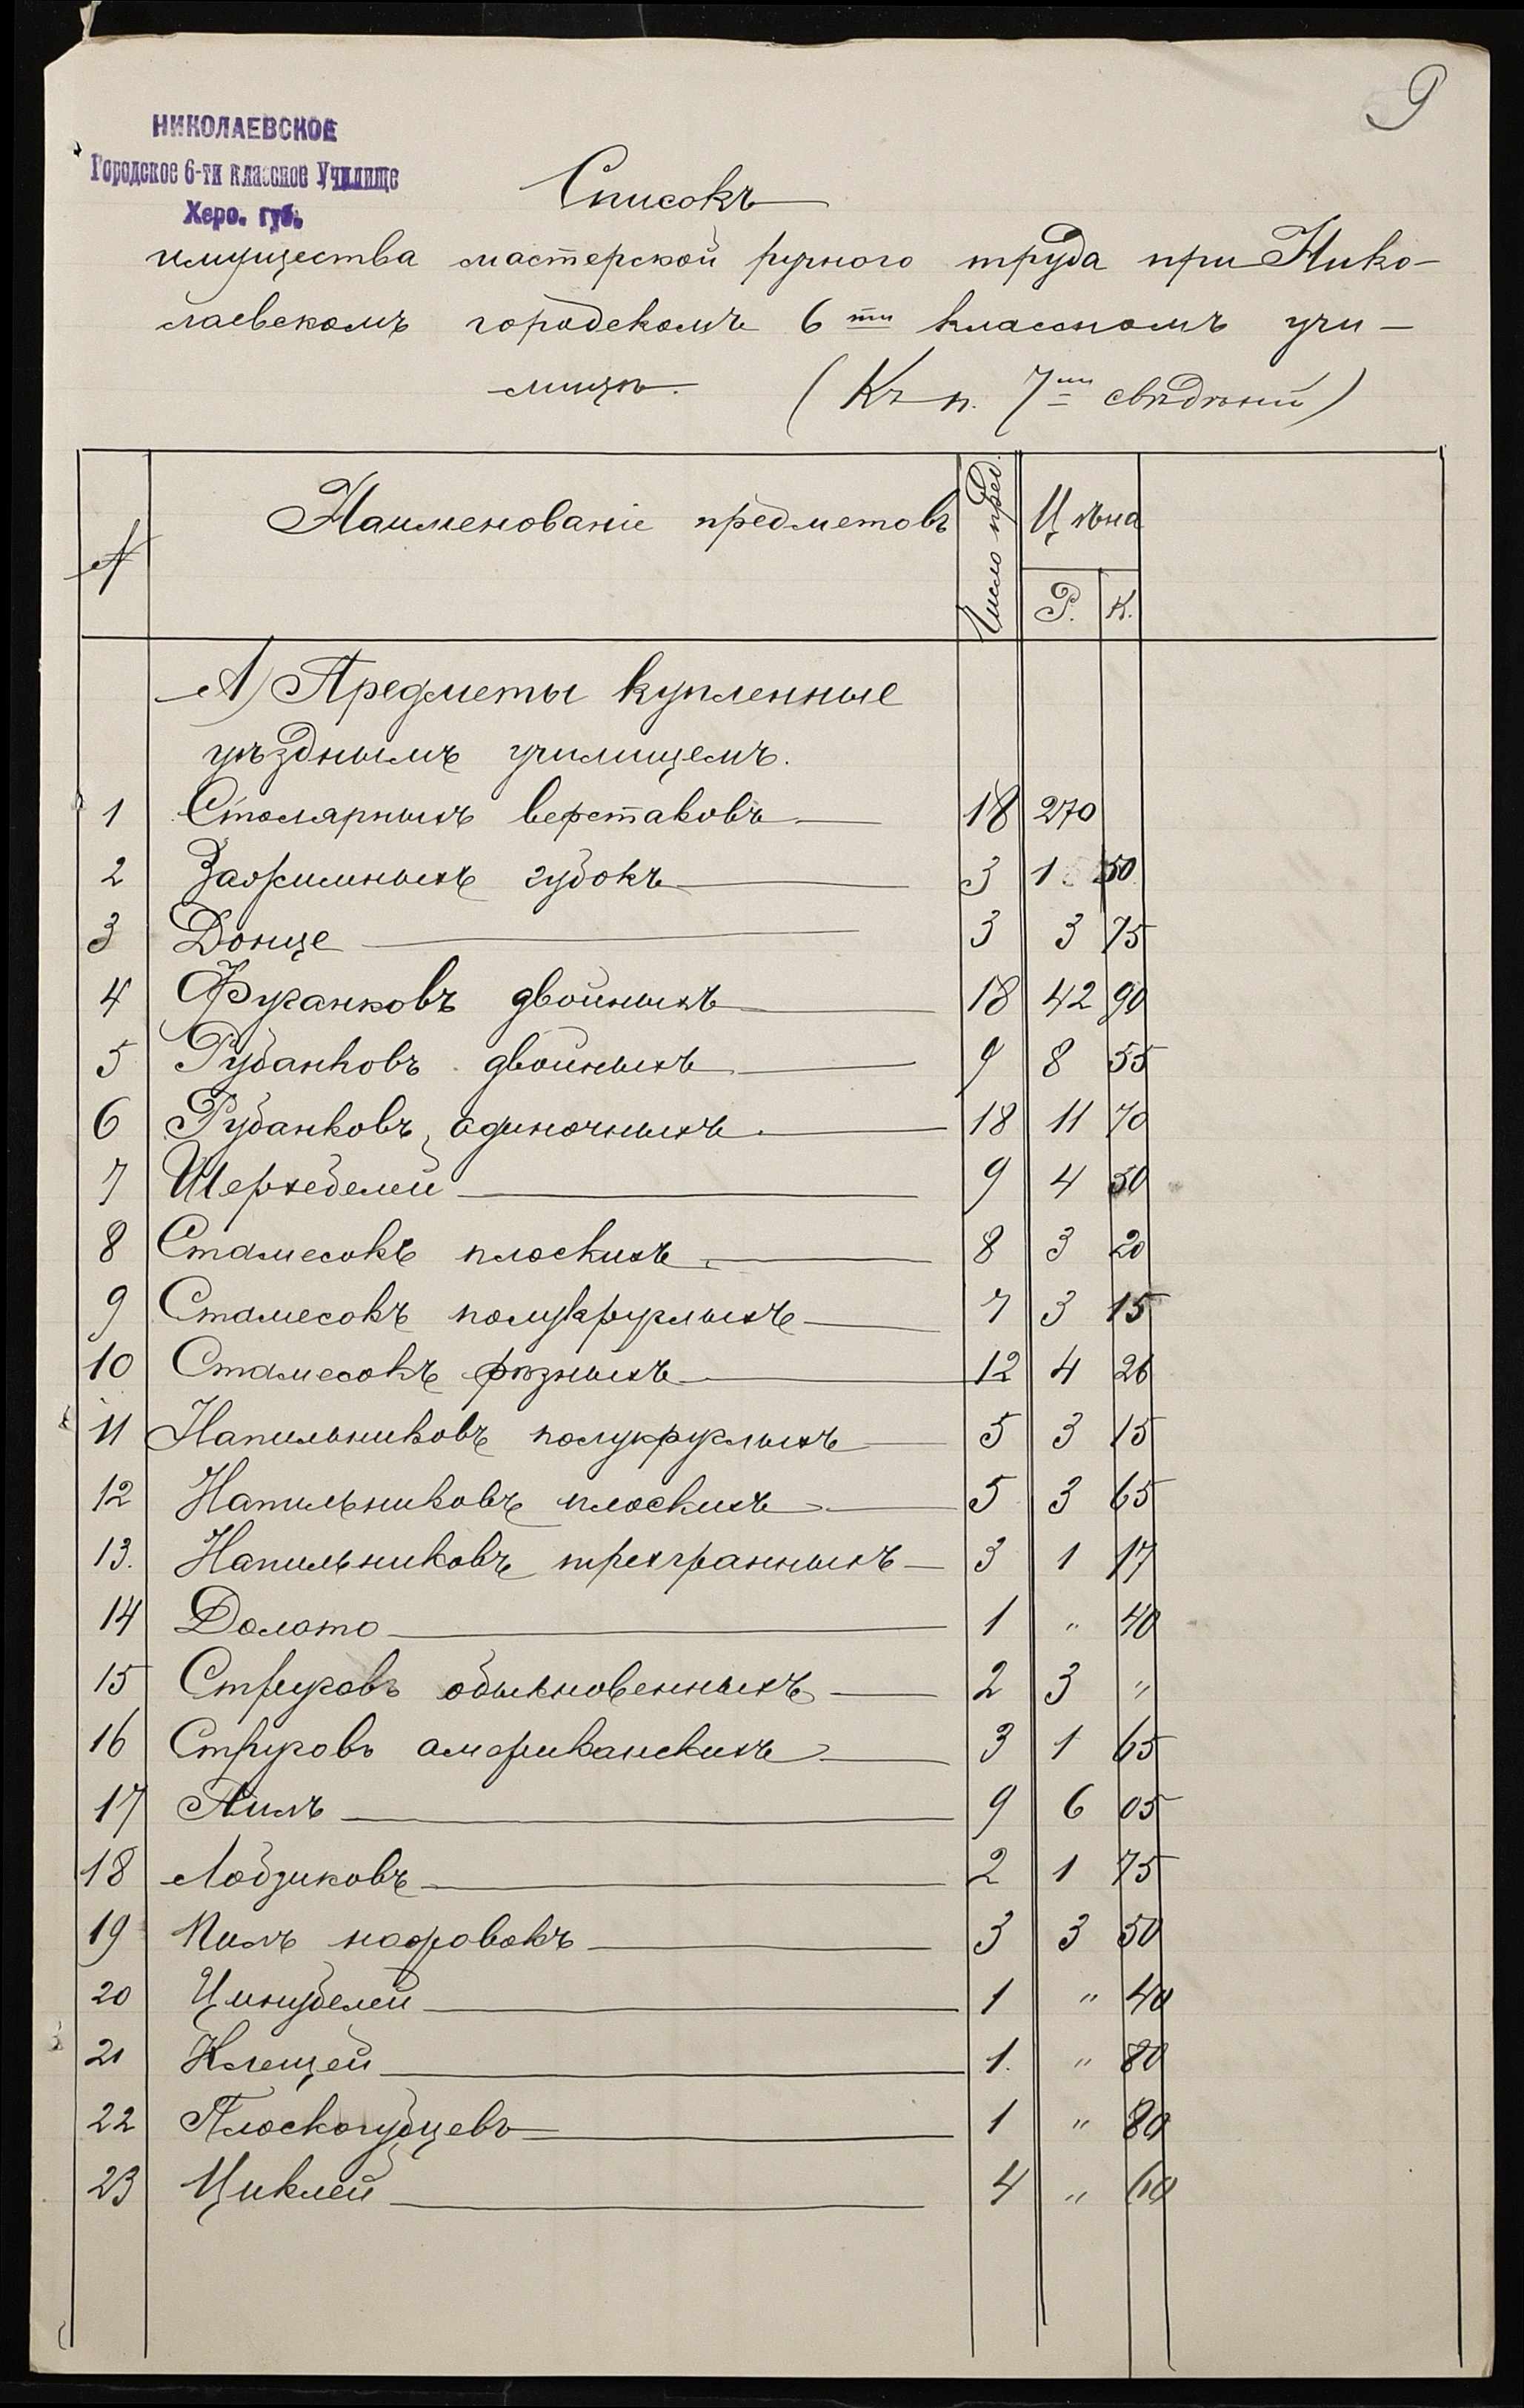 9
НИКОЛАЕВСКОЕ
Городское 6-ти классное Училище
Херс. губ.
Списокъ
имущества мастерской ручного труда при Нико-
лаевскомъ городскомъ 6ти классномъ учи-
лищѣ.
(Къ п. 7му свѣдѣній)
№ Наименованіе предметовъ Число пред. Цѣна
Р. К.
А) Предметы купленные
уѣзднымъ училищемъ.
1 Столярныхъ верстаковъ 18 270
2 Зажимныхъ губокъ 3 1 50
3 Донце 3 3 75
4 Фуганковъ двойныхъ 18 42 90
5 Рубанковъ двойныхъ 9 8 55
6 Рубанковъ одиночныхъ 18 11 70
7 Шерхебелей 9 4 50
8 Стамесокъ плоскихъ 8 3 20
9 Стамесокъ полукруглыхъ 7 3 15
10 Стамесокъ рѣзныхъ 12 4 26
11 Напильниковъ полукруглыхъ 5 3 15
12 Напильниковъ плоскихъ 5 3 65
13. Напильниковъ трехгранныхъ 3 1 17
14 Долото 1 " 40
15 Струговъ обыкновенныхъ 2 3 "
16 Струговъ американскихъ 3 1 65
17 Пилъ 9 6 05
18 Лобзиковъ 2 1 75
19 Пилъ ножовокъ 3 3 50
20 Цинубелей 1 " 40
21 Клещей 1. " 80
22 Плоскогубцевъ 1 " 80
23 Циклей 4 " 60